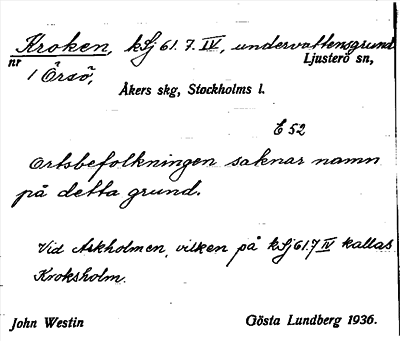 Kroken, kSj 61. 7. IV, undervattensgrund
nr
1 Örsö,
Ljusterö sn,
Åkers skg, Stockholms l.
E 52
Ortsbefolkningen saknar namn
på detta grund.
Vid Askholmen, vilken på kSj 61 7 IV kallas
Kroksholm.
John Westin
Gösta Lundberg 1936.